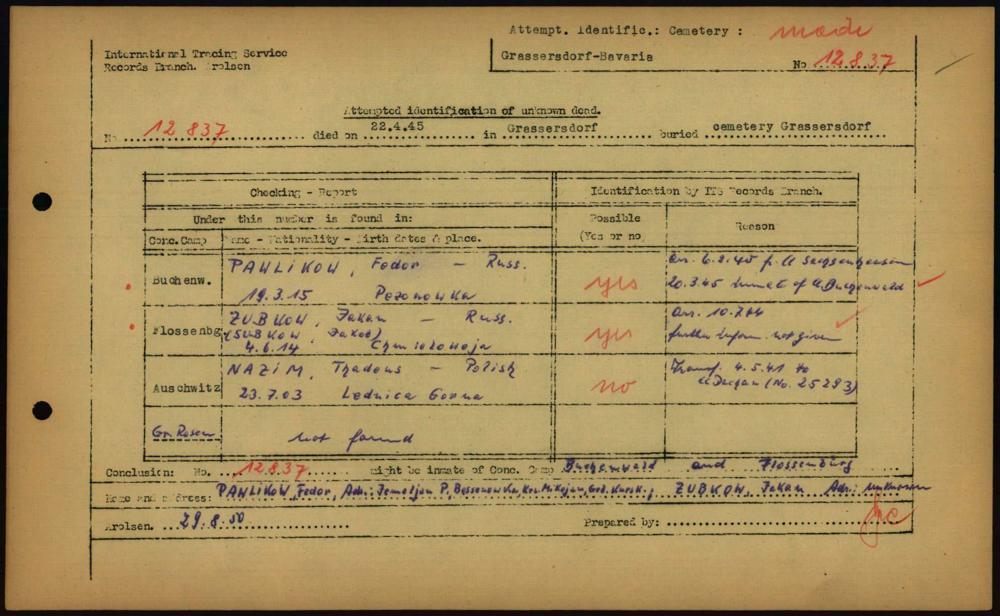 Attempt. Identific.: Cemetery : made
International Tracing Service
Records Branch. Arolsen
Grassersdorf-Bavaria
No 12837
Attempted identification of unknown dead.
No. 12 837 died on 22.4.45 in Grassersdorf buried cemetery Grassersdorf
Checking - Report
Identification by ITS Records Branch.
Under this number is found in:
Possible
(Yes or no)
Reason
Conc.Camp
Name - Nationality - Birth dates & place.
Buchenw.
PAWLIKOW, Fedor - Russ.
19.3.15 Pezonowka
yes
arr. 6.2.45 f. CC Sachsenhausen
20.3.45 inmate of CC Buchenwald
Flossenbg
ZUBKOW, Jakan - Russ.
(SUBKOW, Jakob)
4.6.14
yes
arr. 10.7.44
further inform. not given
Auschwitz
NAZIM, Thadeus - Polish
23.7.03 Lednica Gorna
no
Transf. 4.5.41 to
CC Dachau (No. 25293)
Gr. Rosen
not found
Conclusion: No. 12837 might be inmate of Conc. Camp Buchenwald and Flossenbürg
Name and address: PAWLIKOW, Fedor, Adr.: P. Bessonowka, Kursk., ZUBKOW, Jakan Adr.: unknown
Arolsen. 29.8.50
Prepared by: